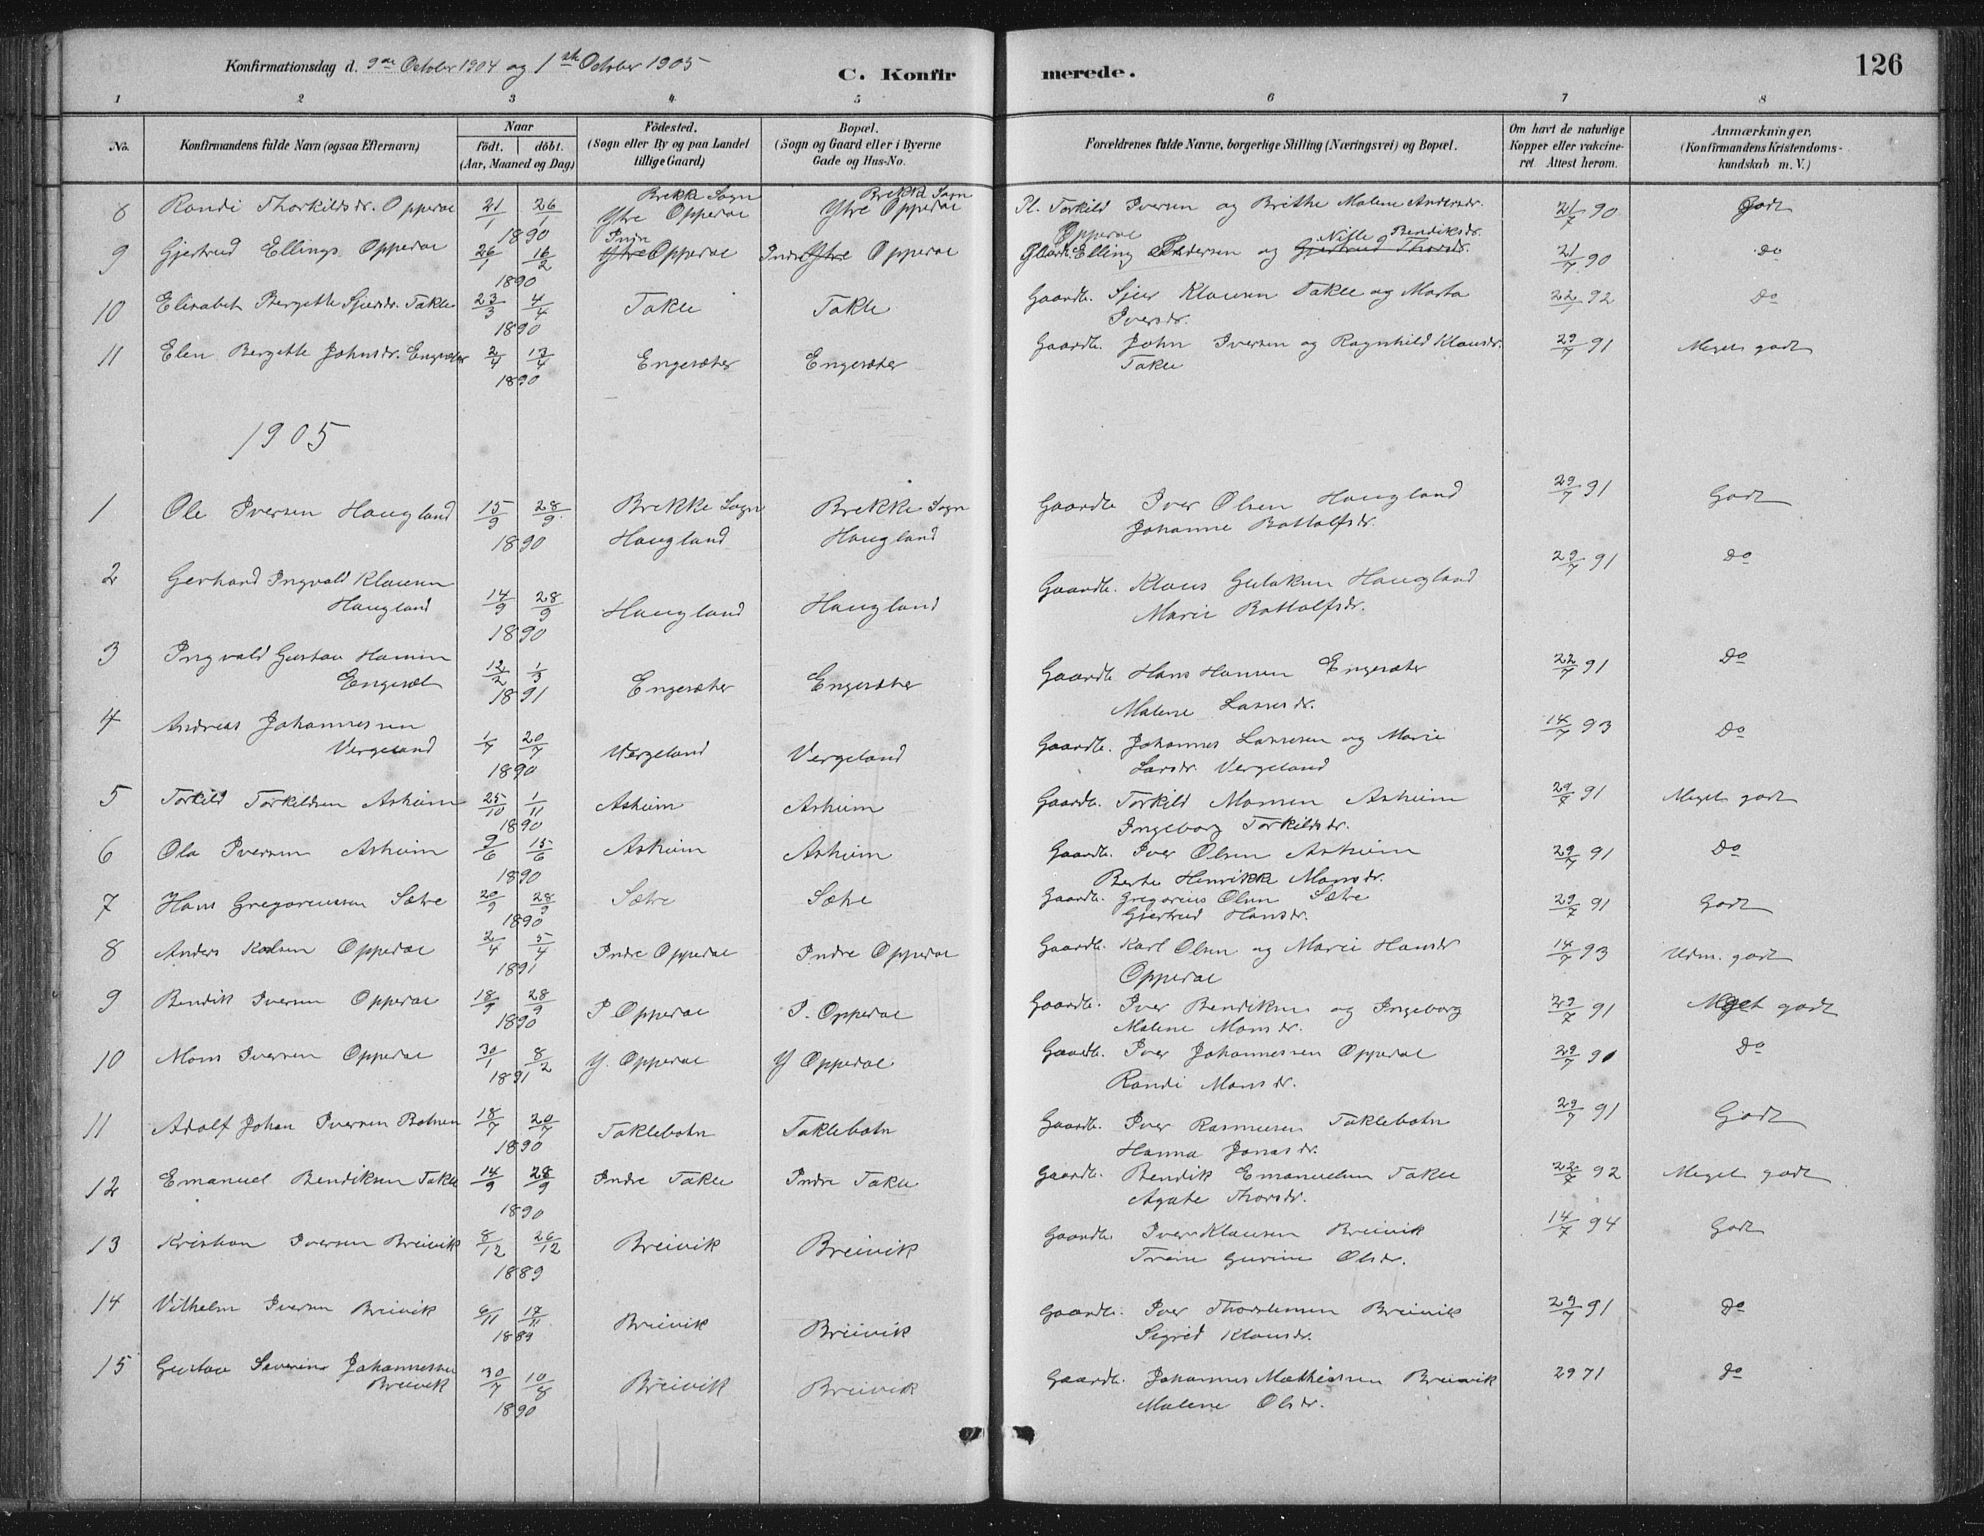 Konfirmationsdag d. 9de October 1904 og 1ste October 1905
C. Konfirmerede.
126
1 2 3 4 5 6 7 8
No.
Konfirmandens fulde Navn (ogsaa Efternavn)
Naar
født. døbt.
(Aar, Maaned og Dag)
Fødested.
(Sogn eller By og paa Landet tillige Gaard)
Bopæl.
(Sogn og Gaard eller i Byerne Gade og Hus-No.
Forældrenes fulde Navne, borgerlige Stilling (Næringsvei) og Bopæl.
Om havt de naturlige Kopper eller vakcineret. Attest herom.
Anmærkninger.
(Konfirmandens Kristendomskundskab m. V.)
8 Randi Thorkildsdr. Opperdal 21/1 26/1 1890 Brekke Sogn Ytre Opperdal Brekke Sogn Ytre Opperdal Pl. Torkild Iversen og Brithe Malene Andersdr. Opperdal 21/7 90 Godt
9 Gjertrud Ellings. Opperdal 26/1 16/2 1890 Indre Ytre Opperdal Indre Ytre Opperdal Gaardb. Elling Pedersen og Gjertrud Thorsdr. Nille Bendiksdr. 21/7 90 Do
10 Elisabet Bergette Sjursdr. Takle 23/3 4/4 1890 Takle Takle Gaardb. Sjur Klausen Takle og Marta Iversdr. 22/7 92 Do
11 Elen Bergette Johnsdr. Engesæter 2/4 13/4 1890 Engesæter Engesæter Gaardb. John Iversen og Ragnhild Klausdr. Takle 29/7 91 Meget godt
1905
1 Ole Iversen Haugland 15/9 28/9 1890 Brekke Sogn Haugland Brekke Sogn Haugland Gaardb. Iver Olsen Haugland Johanne Battolfsdr. 29/7 91 Godt
2 Gerhard Ingvald Klausen Haugland 14/9 28/9 1890 Haugland Haugland Gaardb. Klaus Gulaksen Haugland Marie Battolfsdr. 29/7 91 Do
3 Ingvald Gustav Hansen Engesæt 12/2 1/3 1891 Engesæter Engesæter Gaardb. Hans Hansen Engesæter Malene Lassesdr. 22/7 91 Do
4 Andreas Johannessen Vergeland 1/7 20/7 1890 Vergeland Vergeland Gaardb. Johannes Larsesen og Marie Larsdr. Vergeland 14/7 93 Do
5 Torkild Torkildsen Asheim 25/10 1/11 1890 Asheim Asheim Gaardb. Torkild Monsen Asheim Ingeborg Torkildsdr. 29/7 91 Meget godt
6 Ola Iversen Asheim 9/6 15/6 1890 Asheim Asheim Gaardb. Iver Olsen Asheim Berte Henrikke Monsdr. 29/7 91 Do
7 Hans Gregoriussen Sætre 20/9 28/9 1890 Sætre Sætre Gaardb. Gregorius Olsen Sætre Gjertrud Hansdr. 29/7 91 Godt
8 Anders Kalsen Opperdal 2/4 5/4 1891 Indre Opperdal Indre Opperdal Gaardb. Karl Olsen og Marie Hansdr Opperdal 14/7 93 Udm. godt
9 Bendik Iversen Opperdal 18/9 28/9 1890 I Opperdal I. Opperdal Gaardb. Iver Bendiksen og Ingeborg Malene Monsdr. 29/7 91 Meget godt
10 Mons Iversen Opperdal 30/1 8/2 1891 Y. Opperdal Y Opperdal Gaardb. Iver Johannessen Opperdal Randi Monsdr. 29/7 91 Do
11 Adolf Johan Iversen Botnen 18/7 20/7 1890 Taklebotn Taklebotn Gaardb. Iver Rasmussen Taklebotn Hanna Jonasdr. 29/7 91 Godt
12 Emanuel Bendiksen Takle 14/9 28/9 1890 Indre Takle Indre Takle Gaardb. Bendik Emanuelsen Takle Agate Thorsdr. 22/7 92 Meget godt
13 Kristian Iversen Breivik 8/12 26/12 1889 Breivik Breivik Gaardb. Iver Klausen Breivik Trine Gurine Olsdr. 14/7 94 Godt
14 Vilhelm Iversen Breivik 6/11 17/11 1889 Breivik Breivik Gaardb. Iver Thorstensen Breivik Sigrid Klausdr. 29/7 91 Do
15 Gustav Severin Johannessen Breivik 30/7 10/8 1890 Breivik Breivik Gaardb. Johannes Mathissen Breivik Malene Olsdr. 29 71 Do